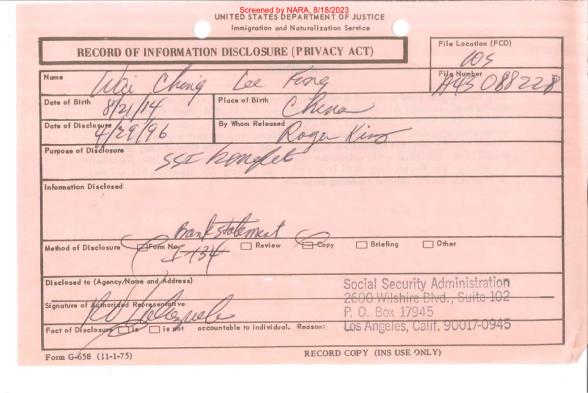 Screened by NARA, 8/18/2023
UNITED STATES DEPARTMENT OF JUSTICE
Immigration and Naturalization Service
RECORD OF INFORMATION DISCLOSURE (PRIVACY ACT)
File Location (FCO)
LOS
Name
Wai Ching Lee Fong
File Number
A43 088 228
Date of Birth
8/21/14
Place of Birth
China
Date of Disclosure
4/29/96
By Whom Released
Roger King
Purpose of Disclosure
SSI benefit
Information Disclosed
Bank statement
Method of Disclosure
Form No. Review Copy Briefing Other
I-134
Disclosed to (Agency/Name and Address)
Social Security Administration
2600 Wilshire Blvd., Suite 102
P. O. Box 17945
Los Angeles, Calif. 90017-0945
Signature of Authorized Representative
Fact of Disclosure is is not accountable to individual. Reason:
Form G-658 (11-1-75)
RECORD COPY (INS USE ONLY)